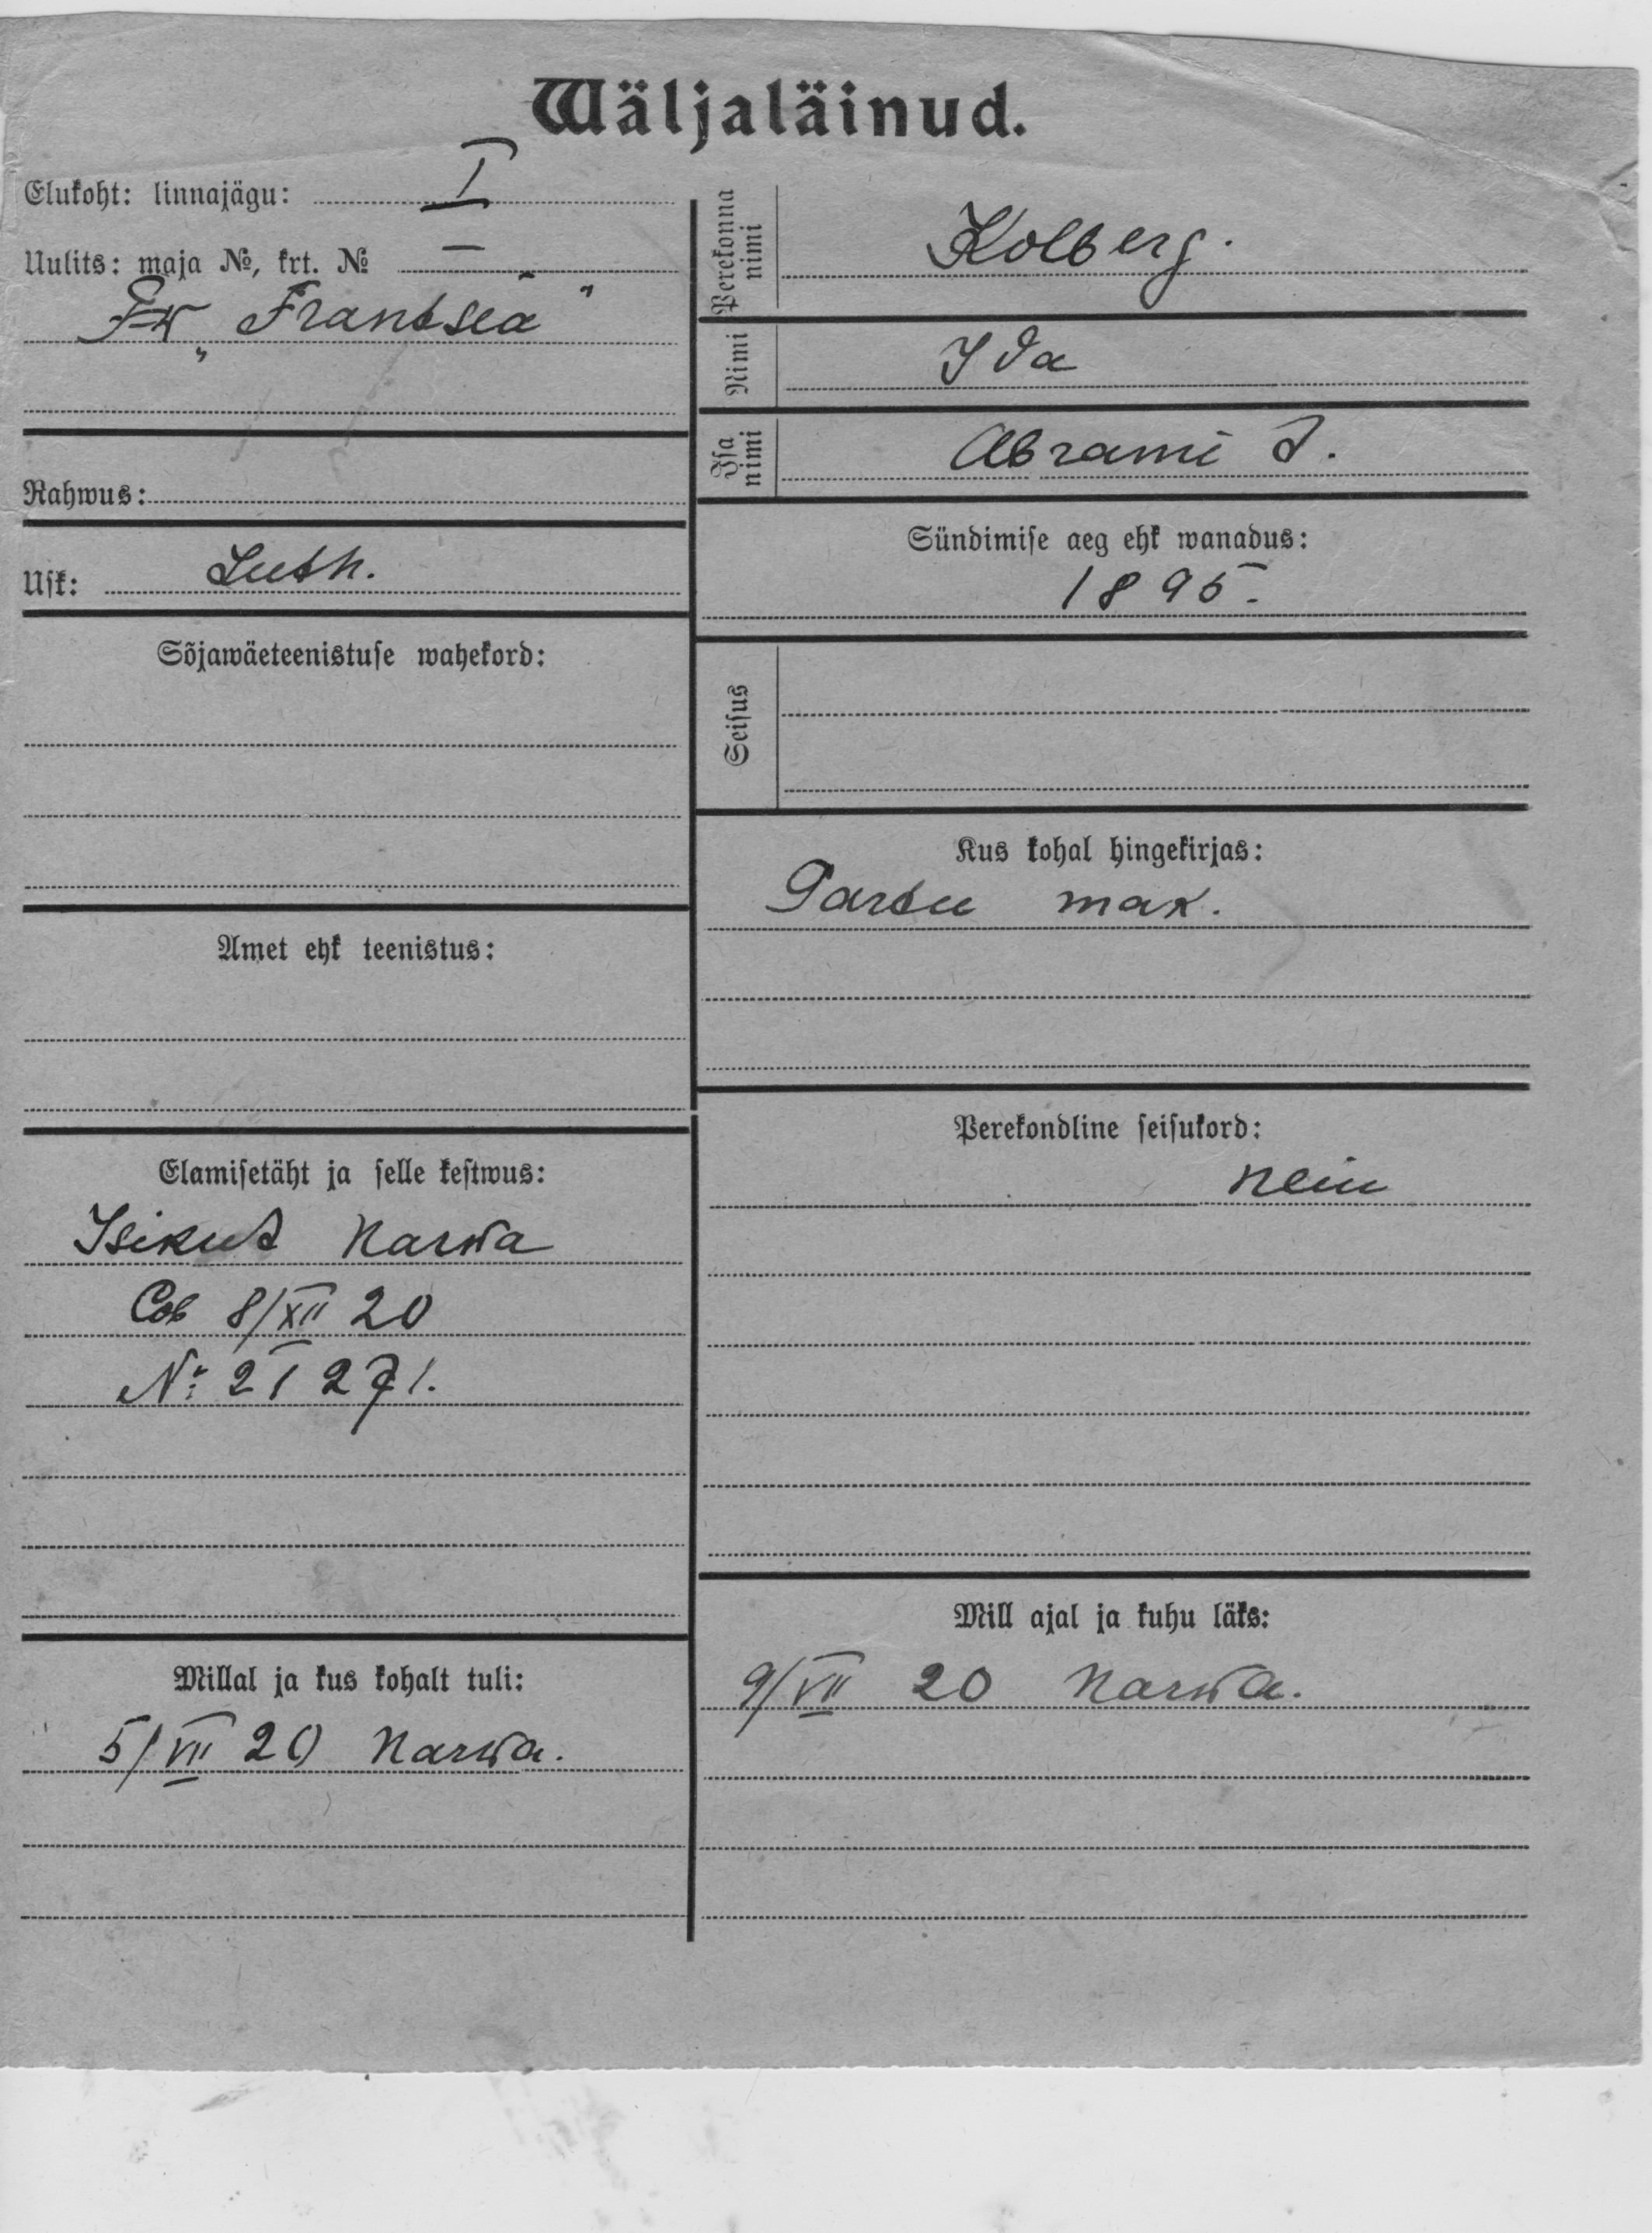 Wäljaläinud.
Elukoht: linnajägu: I
Uulits: maja №, krt. № —
„Frantsea"
Rahwus:
Usk: Luth.
Sõjawäeteenistuse wahekord:
Amet ehk teenistus:
Elamisetäht ja selle kestwus:
Isikut Narwa
8/XII 20
№ 21271.
Millal ja kus kohalt tuli:
5/VII 20 Narwa.
Perekonna nimi
Kolberg.
Nimi
Ida
Isa nimi
Abrami t.
Sündimise aeg ehk wanadus:
1895.
Seisus
Kus kohal hingekirjas:
Tartu mak.
Perekondline seisukord:
Neiu
Mill ajal ja kuhu läks:
9/VII 20 Narwa.